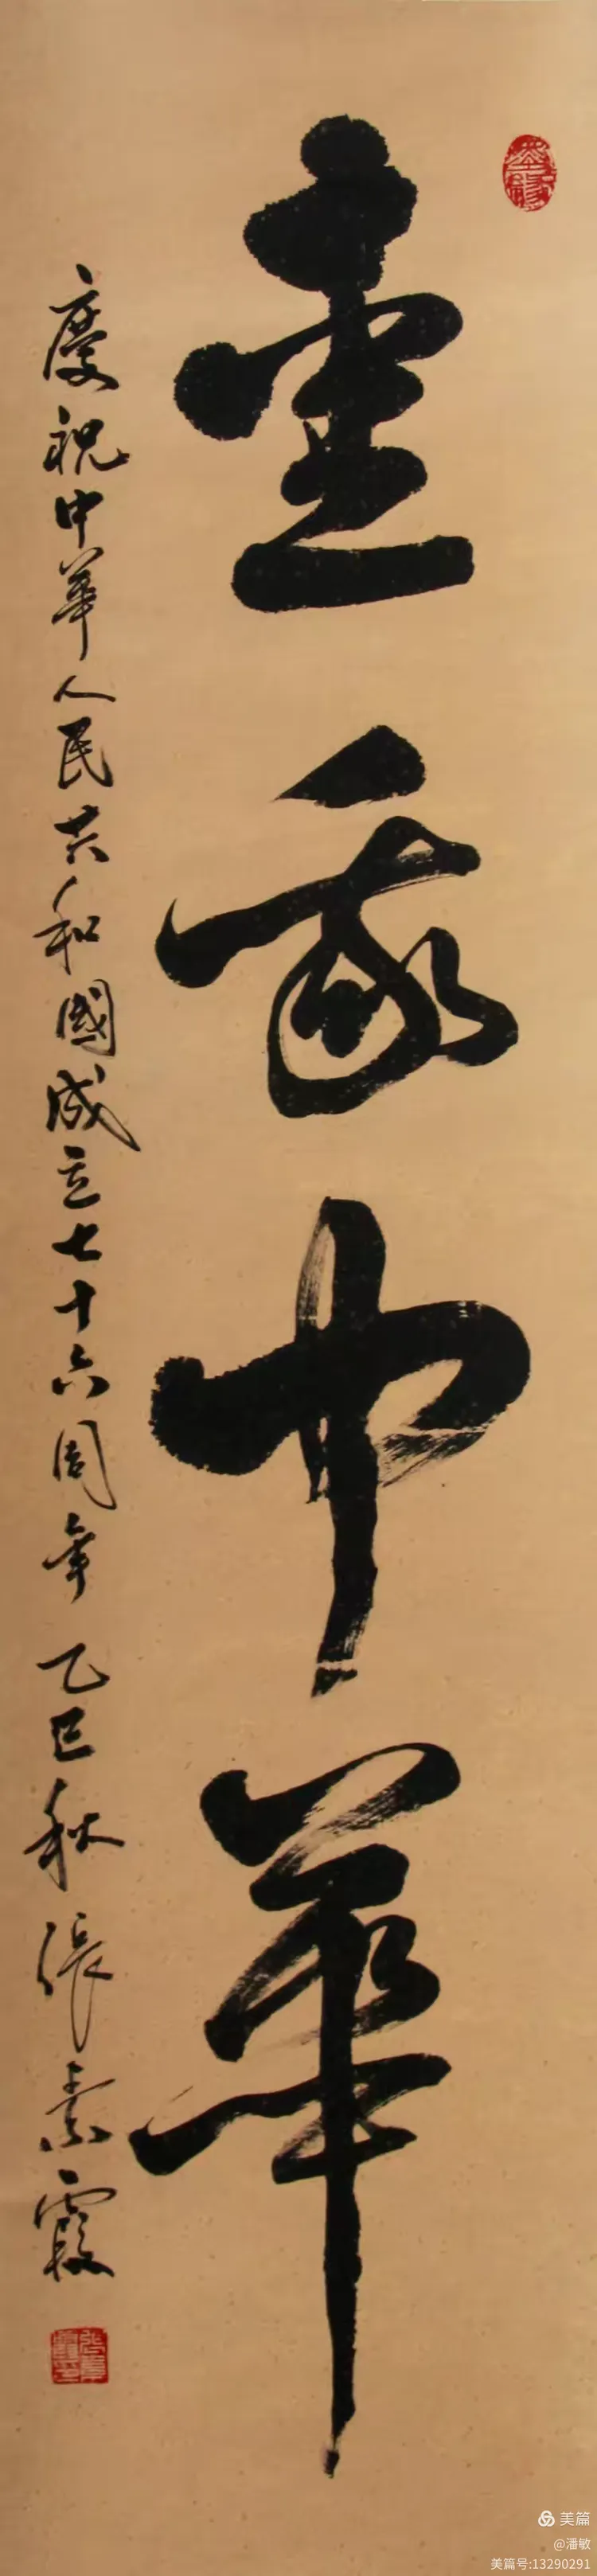 壺我中華
慶祝中華人民共和國成立七十六周年 乙巳秋 張素霞
美篇
@潘敏
美篇号:13290291